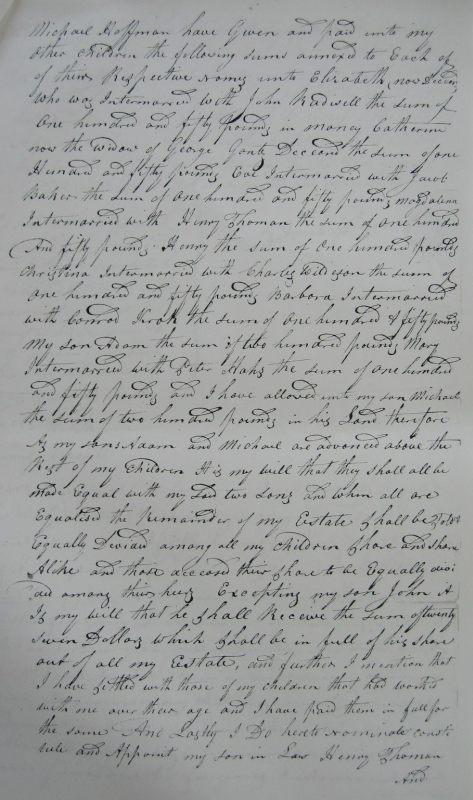 Michael Hoffman have Given and paid unto my
other children the following sums annexed to Each of
of their Respective Names unto Elizabeth, now Deceas
who was Intermarried with John Radwell the sum of
One hundred and fifty Pounds in money Catherine
now the Widow of George Gonts Deceasd the sum of one
Hundred and fifty pounds Eve Intermarried with Jacob
Baker the sum of One hundred and fifty pounds Magdalena
Intermarried with Henry Thoman the sum of one hundred
And fifty pounds. Henry the sum of One hundred pounds
Christina Intermarried with Charles Wildeson the sum of
One hundred and fifty pounds Barbara Intermarried
with Conrod Krok the sum of One hundred & fifty pounds
My son Adam the sum of two hundred pounds Mary
Intermarried with Peter Hahs the sum of one hundred
and fifty pounds and I have allowed unto my son Michael
the sum of two hundred pounds in his Land therefore
As my sons Adam and Michael are advanced above the
Rest of my Children It is my will that they shall all be
made Equal with my said two sons and when all are
Equalised the Remainder of my Estate shall be
Equally Devided among all my children share and share
Alike and those deceasd their share to be Equally devi
ded among their heirs Excepting my son John it
Is my will that he shall Receive the sum of twenty
seven Dollars which shall be in full of his share
out of all my Eestate, and further I mention that
I have settled with those of my children that had worked
with me over their age and I have paid them in full for
the same And Lastly I Do hereby nominate consti
tute and Appoint my son in Law Henry Thoman
And